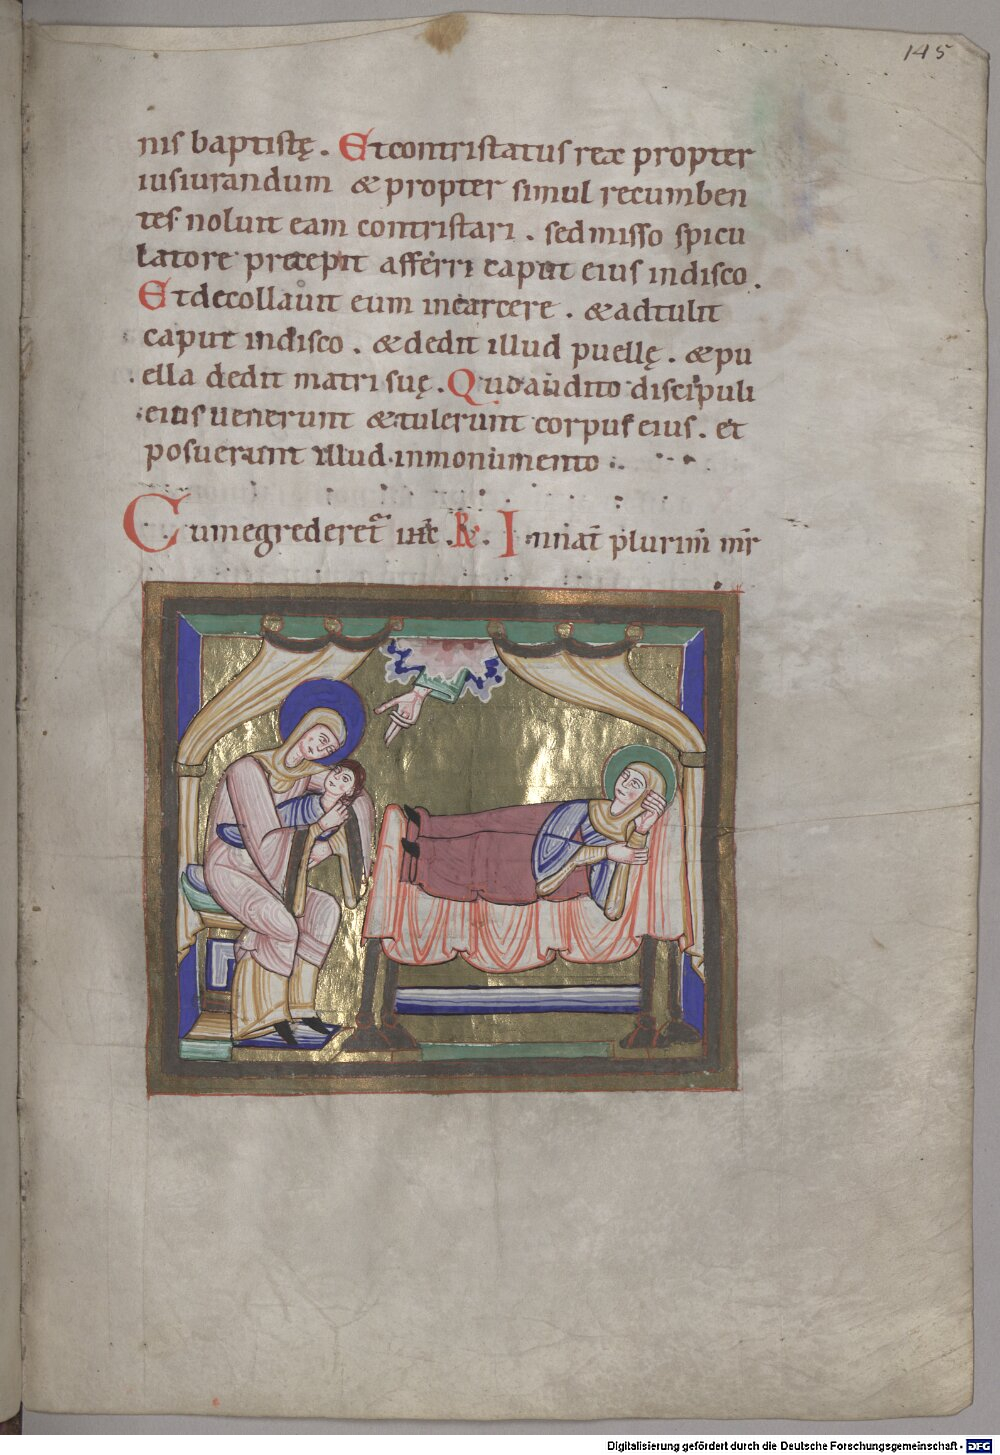 145
nis baptistę. Et contristatus rex propter
iusiurandum & propter simul recumben
tes noluit eam contristari. sed misso spicu
latore precepit afferri caput eius in disco.
Et decollauit eum in carcere. & adtulit
caput in disco. & dedit illud puellę. & pu
ella dedit matri suę. Quo audito discipuli
eius uenerunt & tulerunt corpus eius. et
posuerunt illud in monumento
Cum egrederet R. In
Digitalisierung gefördert durch die Deutsche Forschungsgemeinschaft - DFG